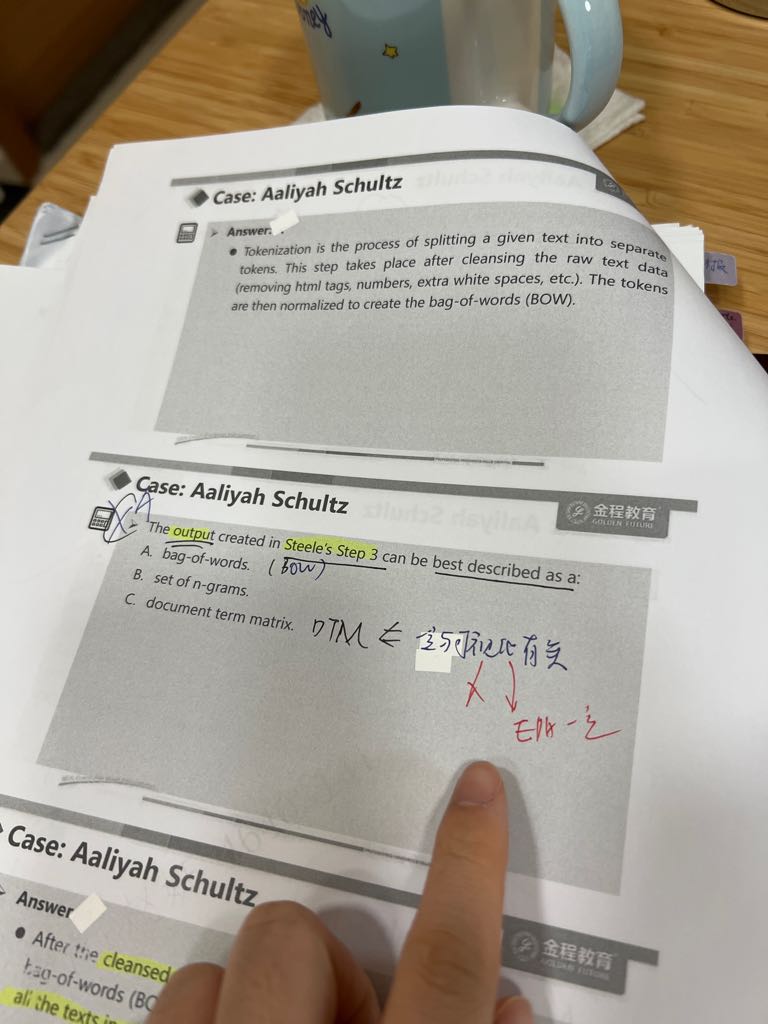 Case: Aaliyah Schultz
Answer:
Tokenization is the process of splitting a given text into separate
tokens. This step takes place after cleansing the raw text data
(removing html tags, numbers, extra white spaces, etc.). The tokens
are then normalized to create the bag-of-words (BOW).
Case: Aaliyah Schultz
金程教育
GOLDEN FUTURE
XA
The output created in Steele's Step 3 can be best described as a:
A. bag-of-words. (BOW)
B. set of n-grams.
C. document term matrix. DTM
有关
X
一定
Case: Aaliyah Schultz
金程教育
GOLDEN FUTURE
Answer
After the cleansed
bag-of-words (BO
all the texts in